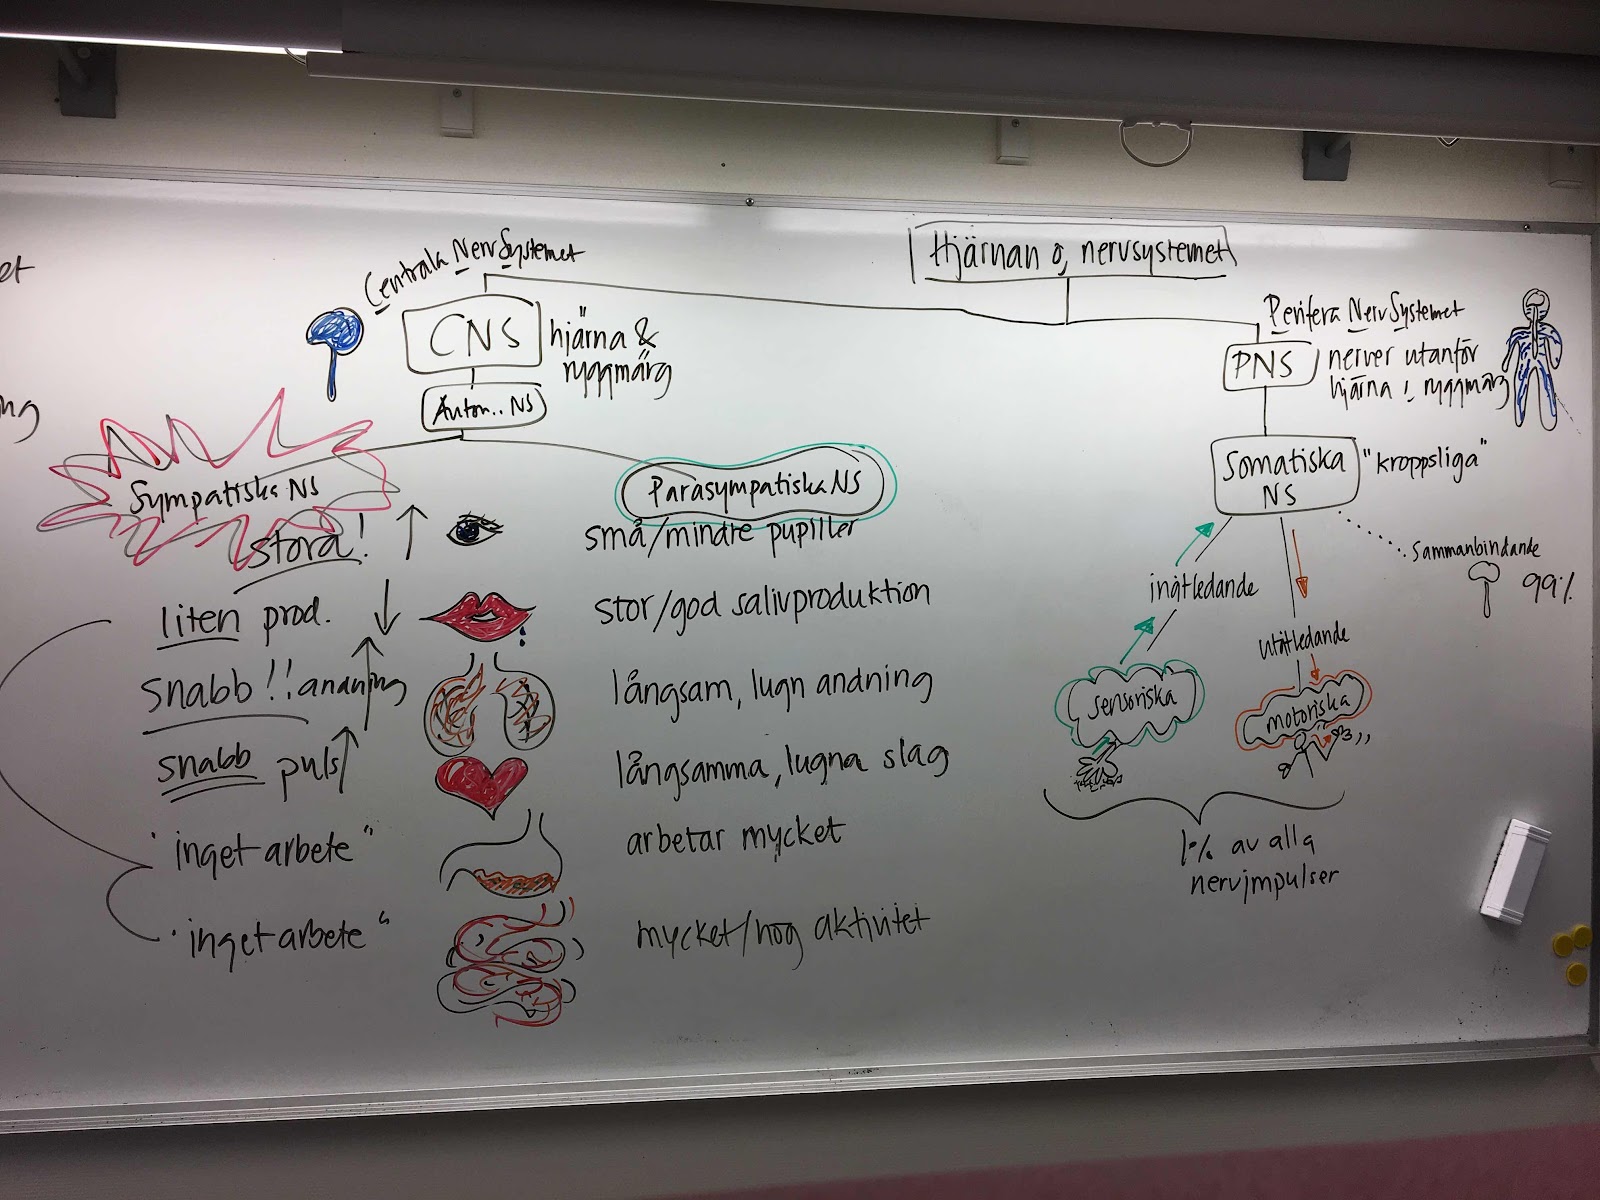 et
ng
Hjärnan o, nervsystemet
Centrala NervSystemet
CNS
hjärna &
ryggmärg
Auton.. NS
Sympatiska NS
Parasympatiska NS
stora!
små/mindre pupiller
liten prod.
stor/god salivproduktion
snabb!! andning
långsam, lugn andning
snabb puls
långsamma, lugna slag
"inget arbete"
arbetar mycket
"inget arbete"
mycket/hög aktivitet
Perifera NervSystemet
PNS
nerver utanför
hjärna, ryggmärg
Somatiska
NS
"kroppsliga"
Sammanbindande
99%
inåtledande
utåtledande
sensoriska
motoriska
1% av alla
nervimpulser